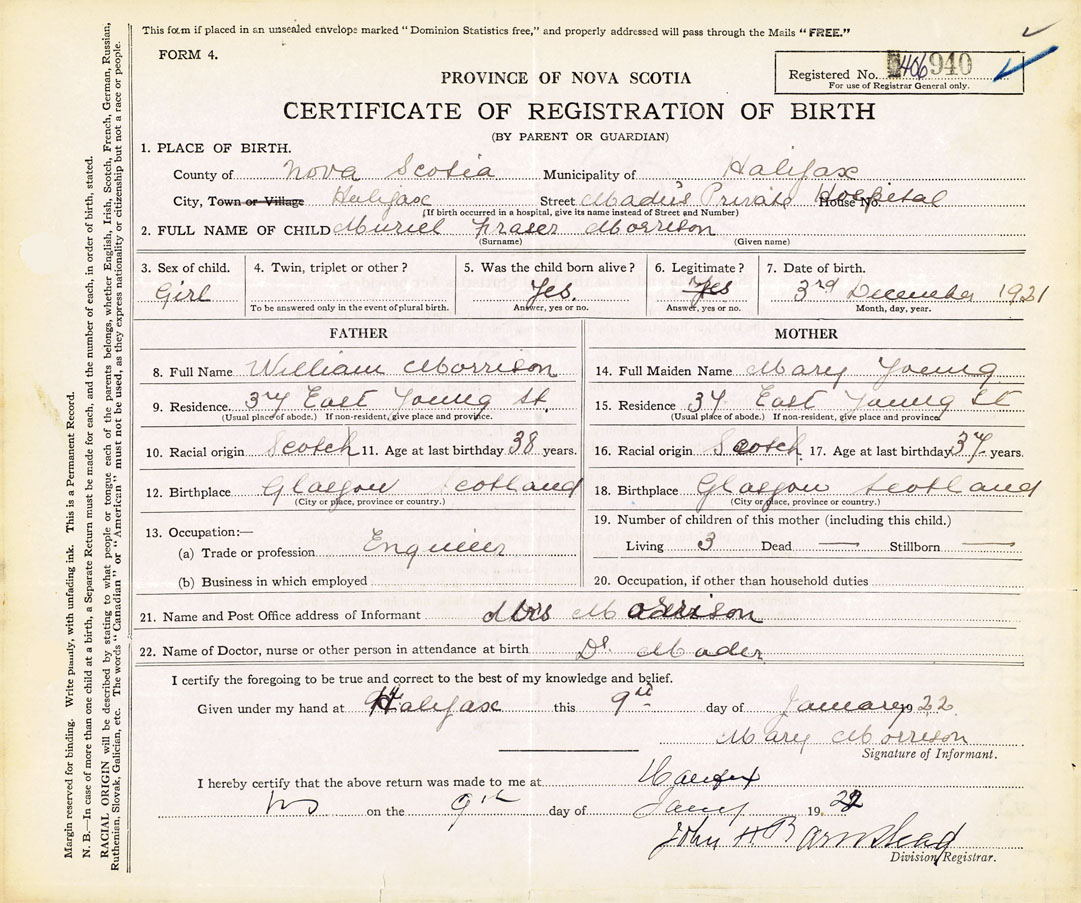 This form if placed in an unsealed envelope marked "Dominion Statistics free," and properly addressed will pass through the Mails "FREE."
FORM 4.
Registered No. 406 940
For use of Registrar General only.
PROVINCE OF NOVA SCOTIA
CERTIFICATE OF REGISTRATION OF BIRTH
(BY PARENT OR GUARDIAN)
1. PLACE OF BIRTH.
County of Nova Scotia Municipality of Halifax
City, Town or Village Halifax Street Madu's Private Hospital House No.
(If birth occurred in a hospital, give its name instead of Street and Number)
2. FULL NAME OF CHILD Muriel Fraser Morrison
(Surname) (Given name)
3. Sex of child. 4. Twin, triplet or other? 5. Was the child born alive? 6. Legitimate? 7. Date of birth.
Girl Yes. Yes 3rd December 1921
To be answered only in the event of plural birth. Answer, yes or no. Answer, yes or no. Month, day, year.
FATHER MOTHER
8. Full Name William Morrison 14. Full Maiden Name Mary Young
9. Residence 37 East Young St. 15. Residence 37 East Young St
(Usual place of abode.) If non-resident, give place and province. (Usual place of abode.) If non-resident, give place and province.
10. Racial origin Scotch 11. Age at last birthday 38 years. 16. Racial origin Scotch 17. Age at last birthday 37 years.
12. Birthplace Glasgow Scotland 18. Birthplace Glasgow Scotland
(City or place, province or country.) (City or place, province or country.)
13. Occupation:— 19. Number of children of this mother (including this child.)
(a) Trade or profession Engineer Living 3 Dead — Stillborn —
(b) Business in which employed 20. Occupation, if other than household duties
21. Name and Post Office address of Informant Mrs Morrison
22. Name of Doctor, nurse or other person in attendance at birth Dr. Mader
I certify the foregoing to be true and correct to the best of my knowledge and belief.
Given under my hand at Halifax this 9th day of January 1922
Mary Morrison
Signature of Informant.
I hereby certify that the above return was made to me at Halifax
NS on the 9th day of Jany 1922
John H Barnstead
Division Registrar.
Margin reserved for binding. Write plainly, with unfading ink. This is a Permanent Record.
N. B.—In case of more than one child at a birth, a Separate Return must be made for each, and the number of each, in order of birth, stated.
RACIAL ORIGIN will be described by stating to what people or tongue each of the parents belongs, whether English, Irish, Scotch, French, German, Russian,
Ruthenian, Slovak, Galician, etc. The words "Canadian" or "American" must not be used, as they express nationality or citizenship but not a race or people.